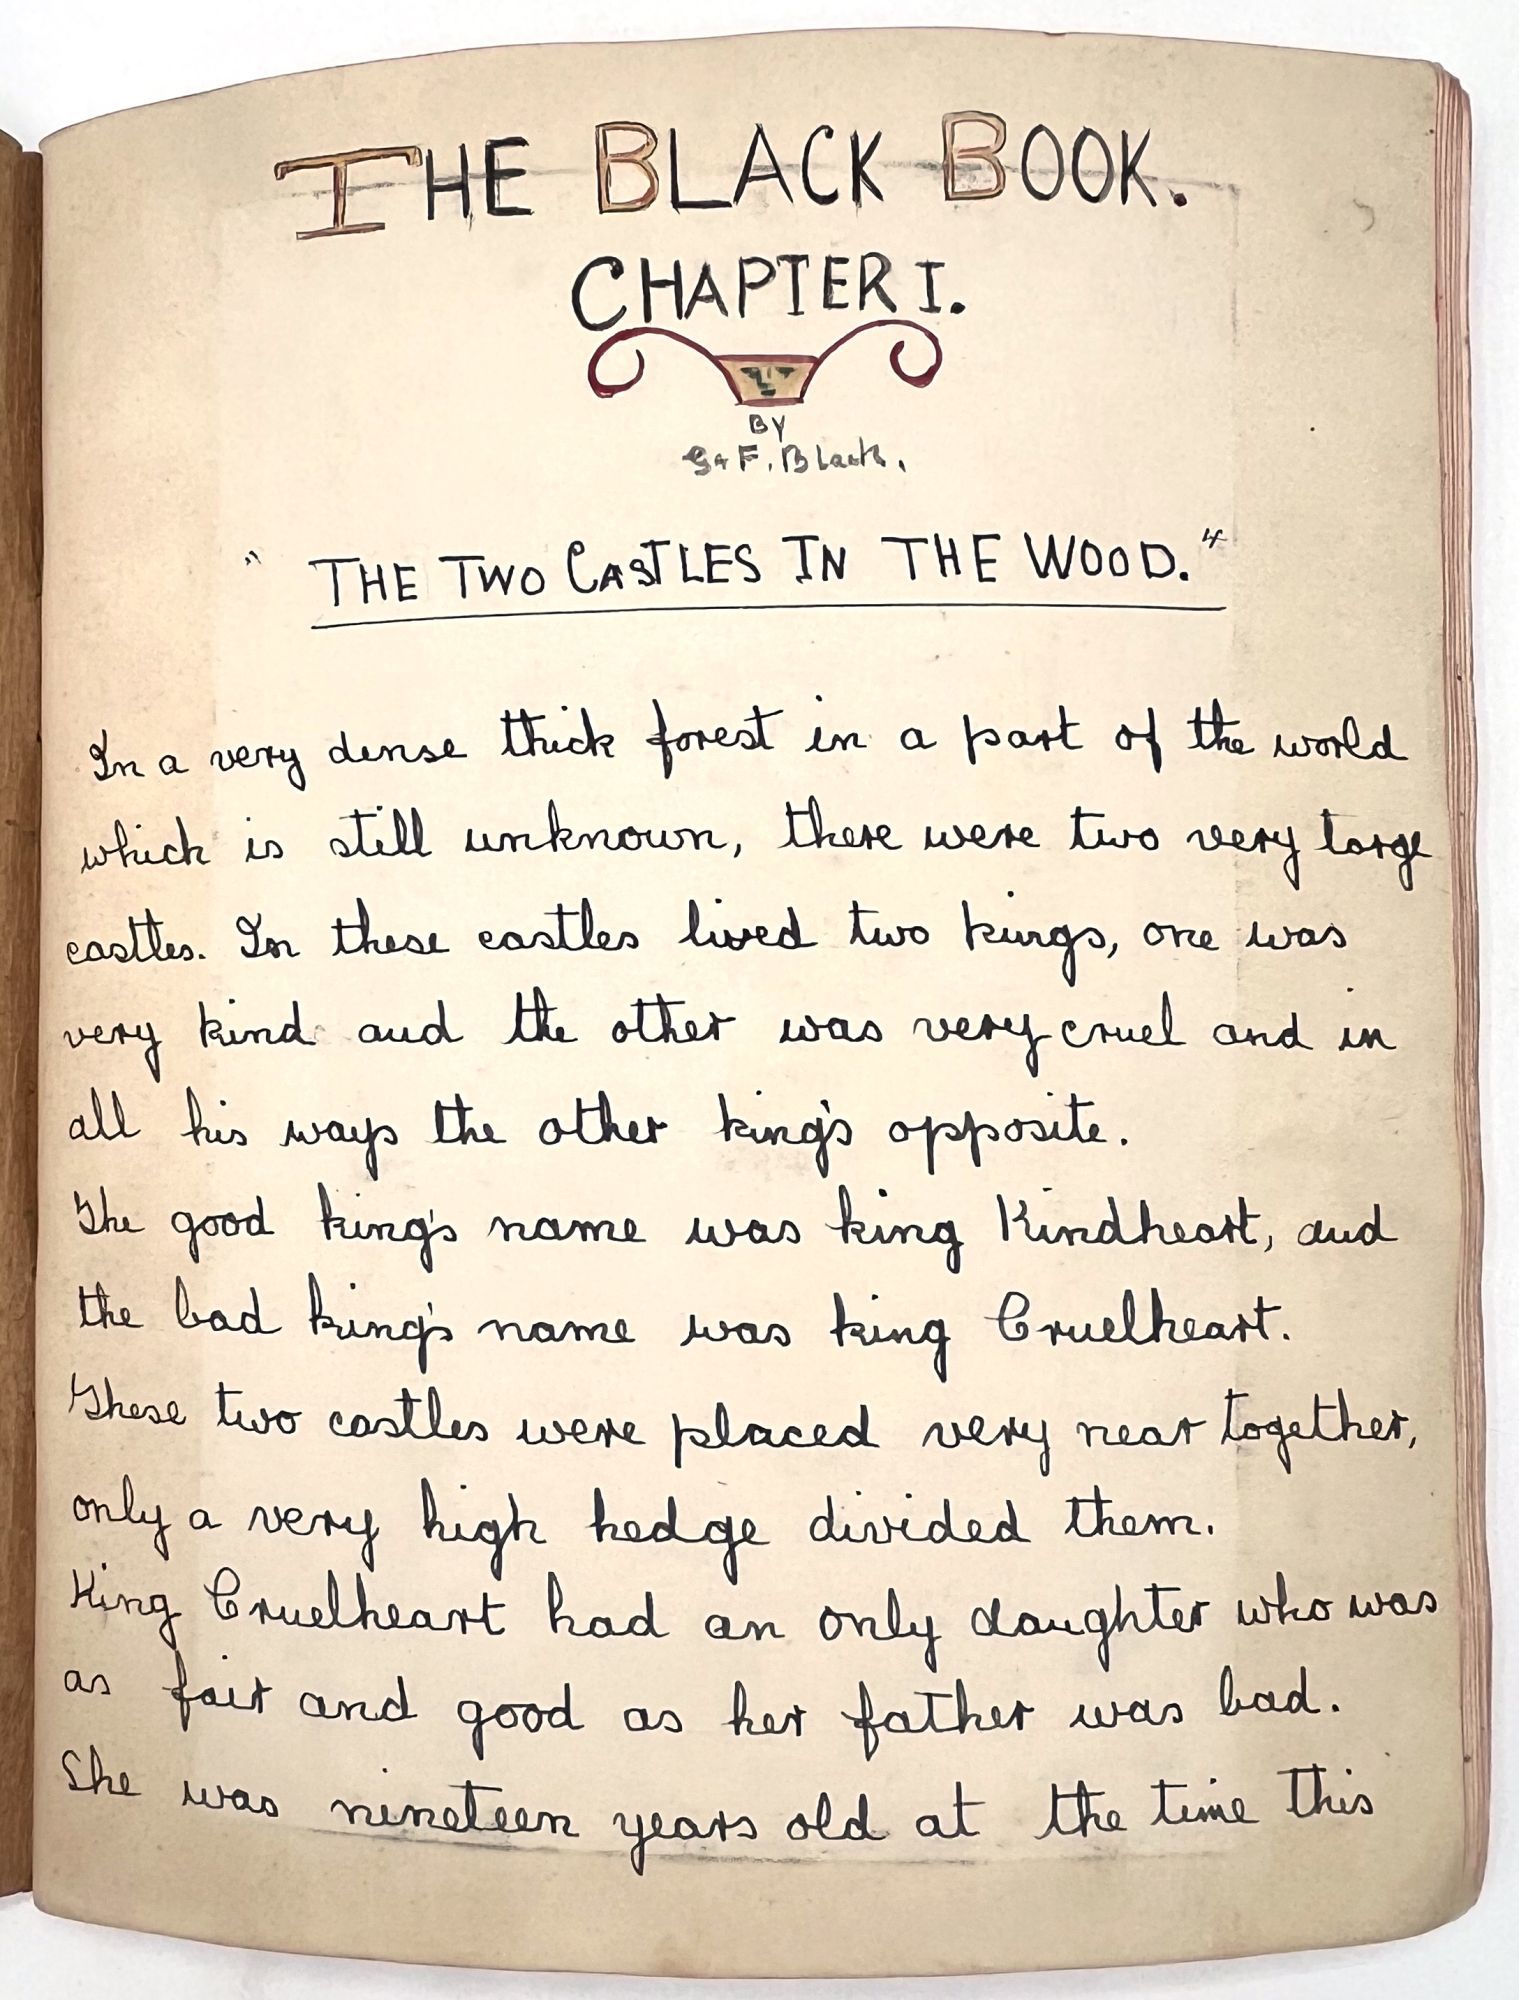 THE BLACK BOOK.
CHAPTER I.
BY
G + F. Black.
"THE TWO CASTLES IN THE WOOD."
In a very dense thick forest in a part of the world
which is still unknown, there were two very large
castles. In these castles lived two kings, one was
very kind and the other was very cruel and in
all his ways the other king's opposite.
The good king's name was king Kindheart, and
the bad king's name was king Cruelheart.
These two castles were placed very near together,
only a very high hedge divided them.
King Cruelheart had an only daughter who was
as fair and good as her father was bad.
She was nineteen years old at the time this